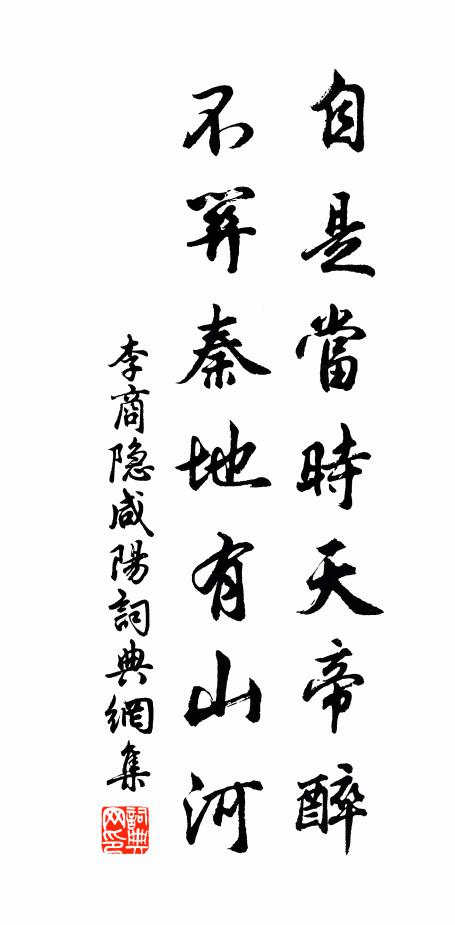 自是當時天帝醉
不関秦地有山河
李商隐咸陽詞典網集
詞典网印